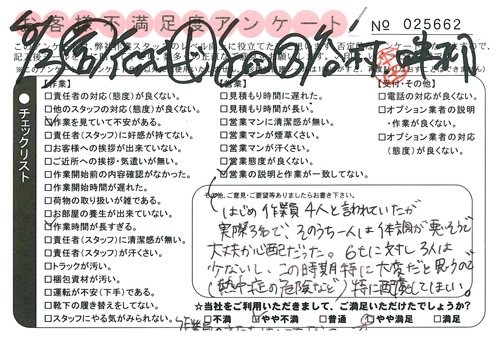 お客様不満足度アンケート
№ 025662
チェックリスト
【作業】
□責任者の対応(態度)が良くない。
□他のスタッフの対応(態度)が良くない。
□作業を見ていて不安がある。
□責任者(スタッフ)に好感が持てない。
□お客様への挨拶が出来ていない。
□ご近所への挨拶・気遣いが無い。
□作業開始前の内容確認がなかった。
□作業開始時間が遅れた。
□荷物の取り扱いが雑である。
□お部屋の養生が出来ていない。
□作業時間が長すぎる。
□責任者(スタッフ)に清潔感が無い。
□責任者(スタッフ)が汗くさい。
□トラックが汚い。
□梱包資材が汚い。
□運転が不安(下手)である。
□靴下の履き替えをしてない。
□スタッフにやる気がみられない。
【営業】
□見積もり時間に遅れた。
□見積もり時間が長い。
□営業マンに清潔感が無い。
□営業マンが煙草くさい。
□営業マンが汗くさい。
□営業態度が良くない。
□営業の説明と作業が一致してない。
【受付・その他】
□電話の対応が良くない。
□オプション業者の説明
・作業が良くない。
□オプション業者の対応
(態度)が良くない。
その他、ご意見・ご要望等ありましたらお書き下さい。
はじめ作業員4人と言われていたが
実際3名で、そのうち一人は体調が悪そうで
大丈夫か心配だった。6tに対し3人は
少ないし、この時期特に大変だと思うので
(熱中症の危険など)特に配慮してほしい。
☆当社をご利用いただきまして、ご満足いただけたでしょうか?
□不満 □やや不満 □普通 □やや満足 □満足